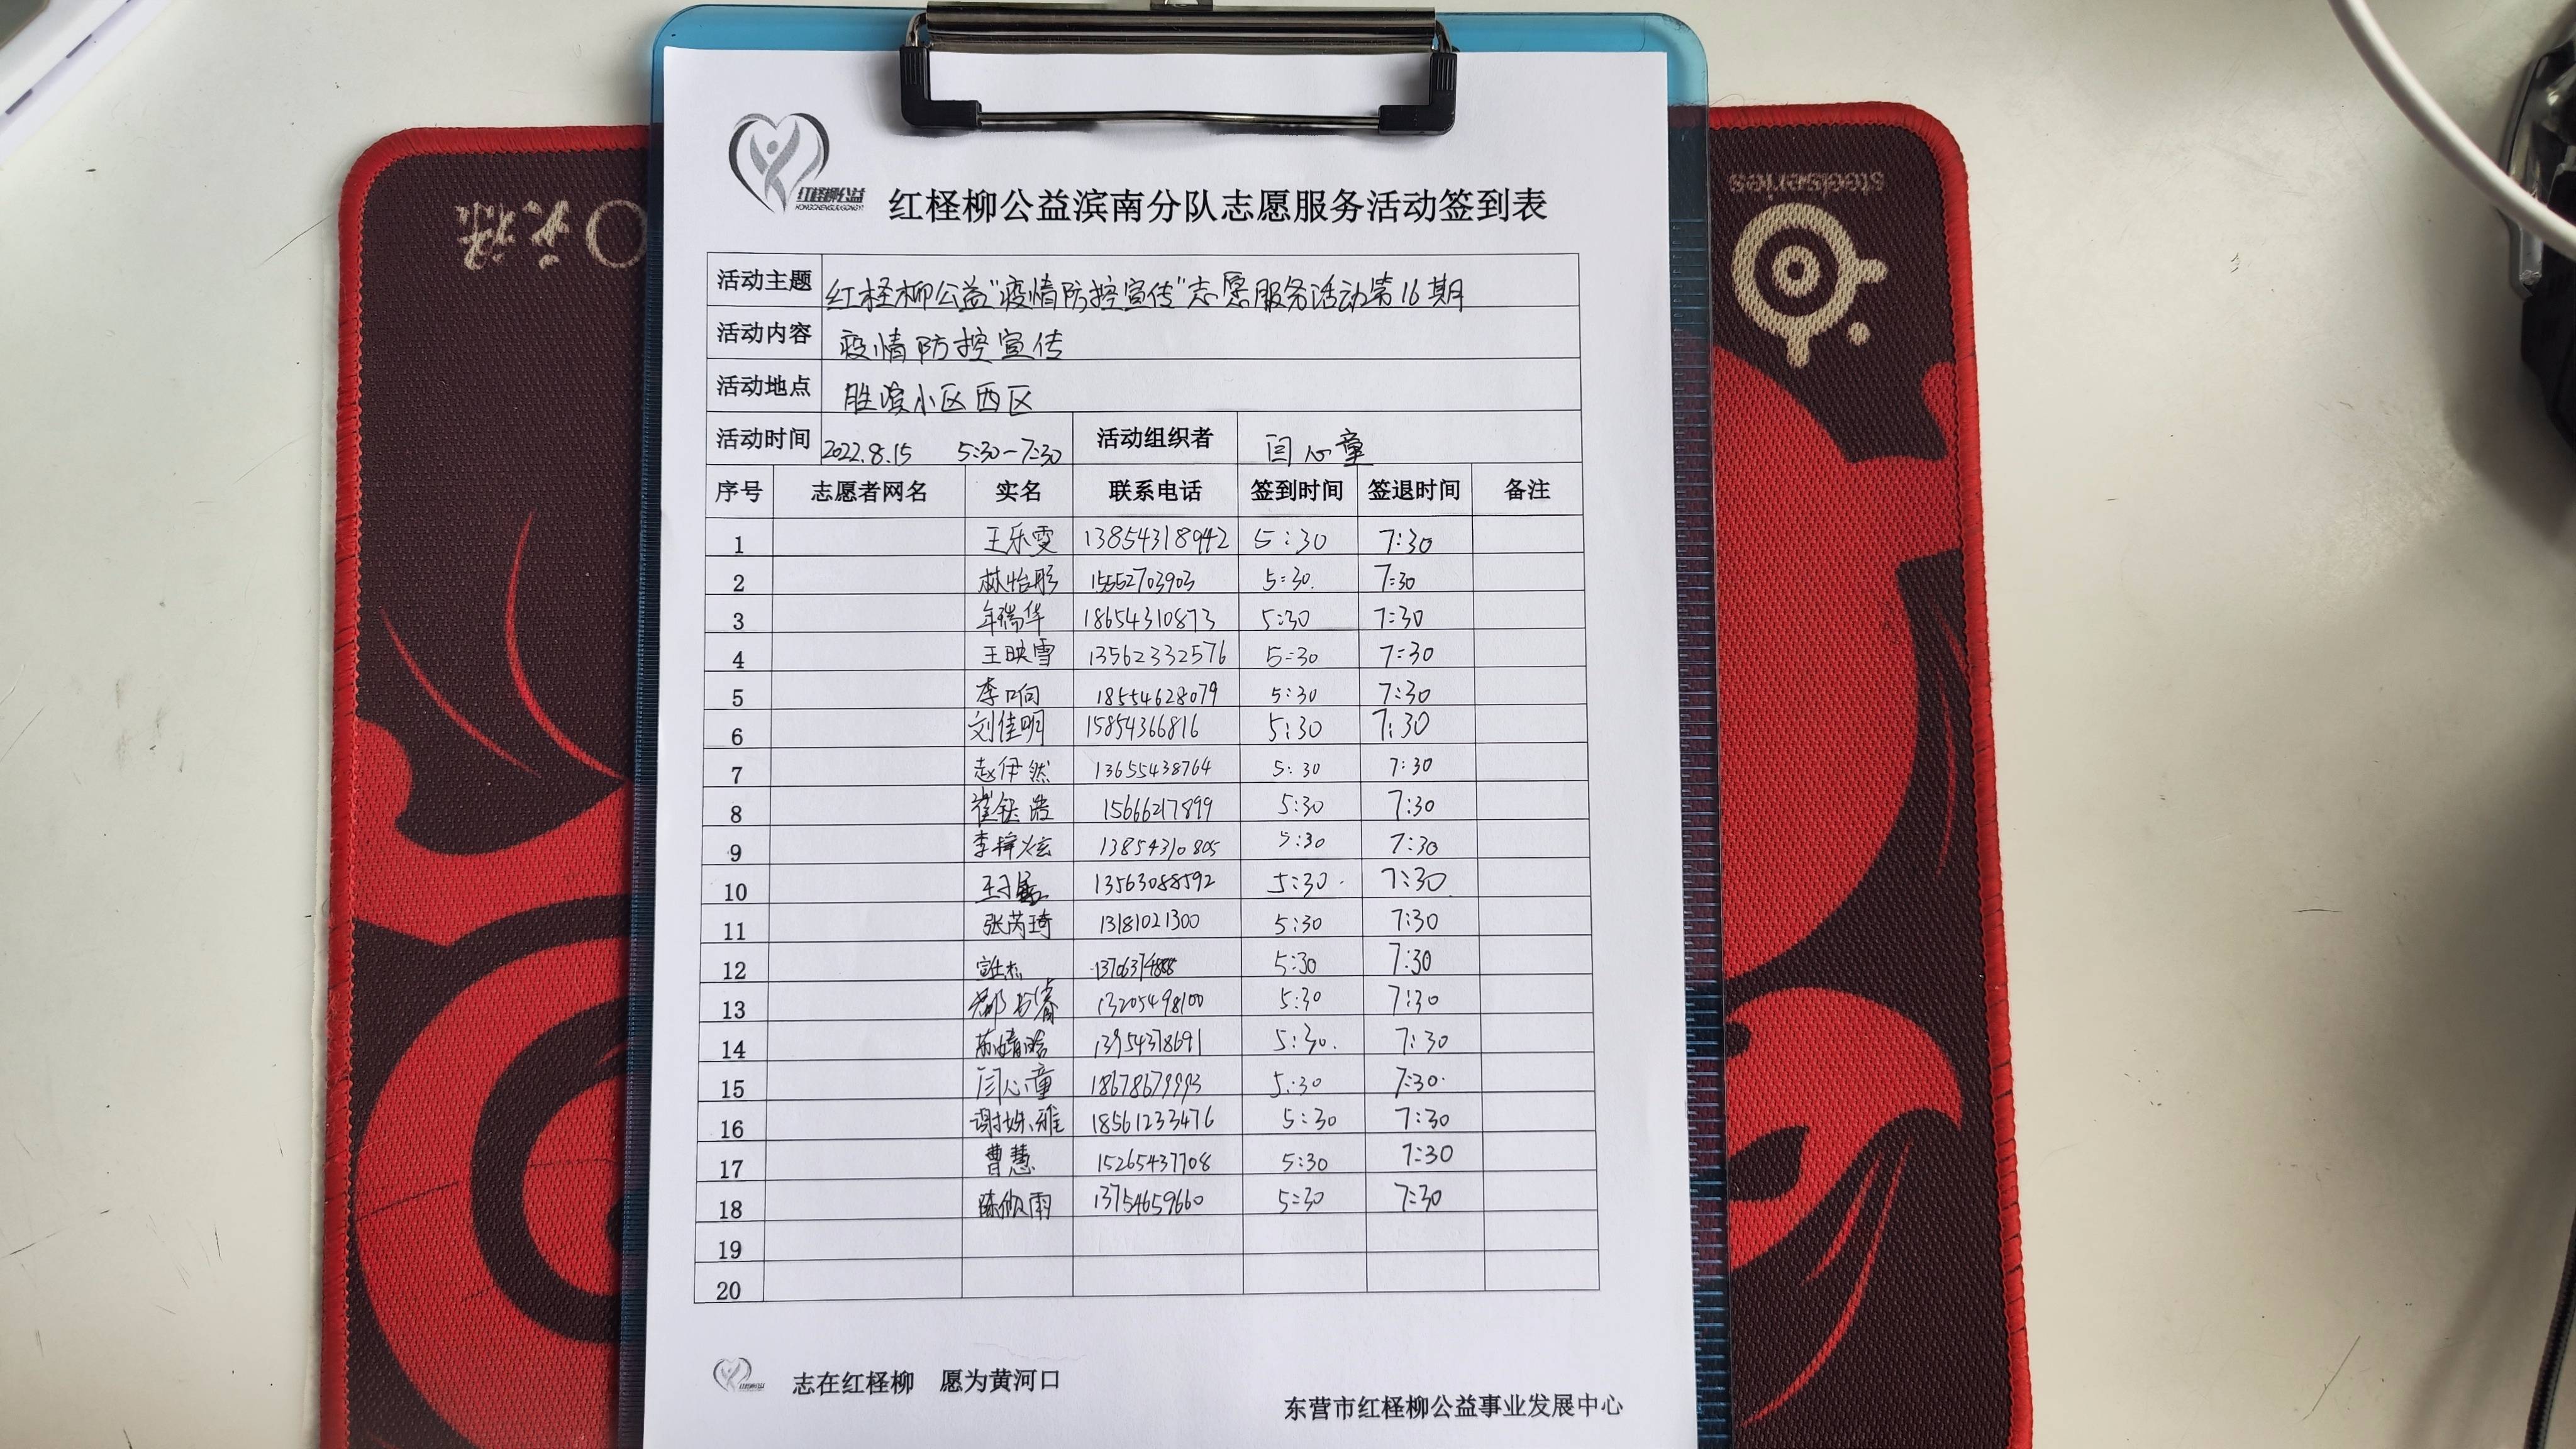 红柽柳公益
HONGCHENGLIUGONGYI
红柽柳公益滨南分队志愿服务活动签到表
活动主题 红柽柳公益"疫情防控宣传"志愿服务活动第16期
活动内容 疫情防控宣传
活动地点 胜滨小区西区
活动时间 2022.8.15 5:30-7:30 活动组织者 闫心童
序号 志愿者网名 实名 联系电话 签到时间 签退时间 备注
1 王乐雯 13854318942 5:30 7:30
2 林怡彤 15552703903 5:30. 7:30
3 牟瑞华 18654310873 5:30 7:30
4 王映雪 13562332576 5:30 7:30
5 李响 18554628079 5:30 7:30
6 刘佳明 15854366816 5:30 7:30
7 赵伊然 13655438764 5:30 7:30
8 崔钰浩 15666217899 5:30 7:30
9 李梓炫 13854310805 5:30 7:30
10 13563088592 5:30. 7:30.
11 张芮琦 13181021300 5:30 7:30
12 5:30 7:30
13 13205498100 5:30 7:30
14 13954378691 5:30. 7:30
15 闫心童 18678679993 5:30 7:30.
16 谢姝雅 18561233476 5:30 7:30
17 曹慧 15265437708 5:30 7:30
18 13754659660 5:30 7:30
19
20
志在红柽柳 愿为黄河口
东营市红柽柳公益事业发展中心
steelseries